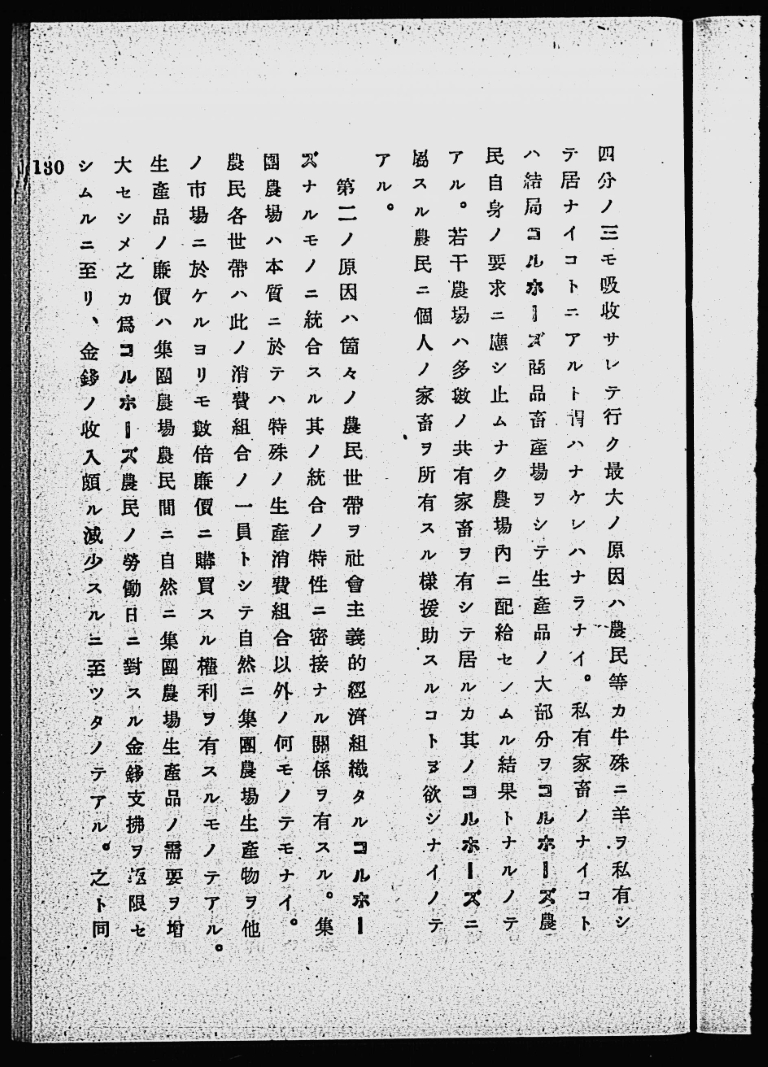 四分ノ三モ吸收サレテ行ク最大ノ原因ハ農民等カ牛殊ニ羊ヲ私有シ
テ居ナイコトニアルト謂ハナケレハナラナイ。私有家畜ノナイコト
ハ結局コルホーズ商品畜產場ヲシテ生產品ノ大部分ヲコルホーズ農
民自身ノ要求ニ應シ止ムナク農場內ニ配給セシムル結果トナルノテ
アル。若干農場ハ多數ノ共有家畜ヲ有シテ居ルカ其ノコルホーズニ
屬スル農民ニ個人ノ家畜ヲ所有スル樣援助スルコトヲ欲シナイノテ
アル。
第二ノ原因ハ箇々ノ農民世帶ヲ社會主義的經濟組織タルコルホー
ズナルモノニ統合スル其ノ統合ノ特性ニ密接ナル關係ヲ有スル。集
團農場ハ本質ニ於テハ特殊ノ生產消費組合以外ノ何モノテモナイ。
農民各世帶ハ此ノ消費組合ノ一員トシテ自然ニ集團農場生產物ヲ他
ノ市場ニ於ケルヨリモ數倍廉價ニ購買スル權利ヲ有スルモノテアル。
生產品ノ廉價ハ集團農場農民間ニ自然ニ集團農場生產品ノ需要ヲ增
大セシメ之カ爲コルホーズ農民ノ勞働日ニ對スル金錢支拂ヲ極限セ
シムルニ至リ、金錢ノ收入頗ル減少スルニ至ツタノテアル。之ト同
130